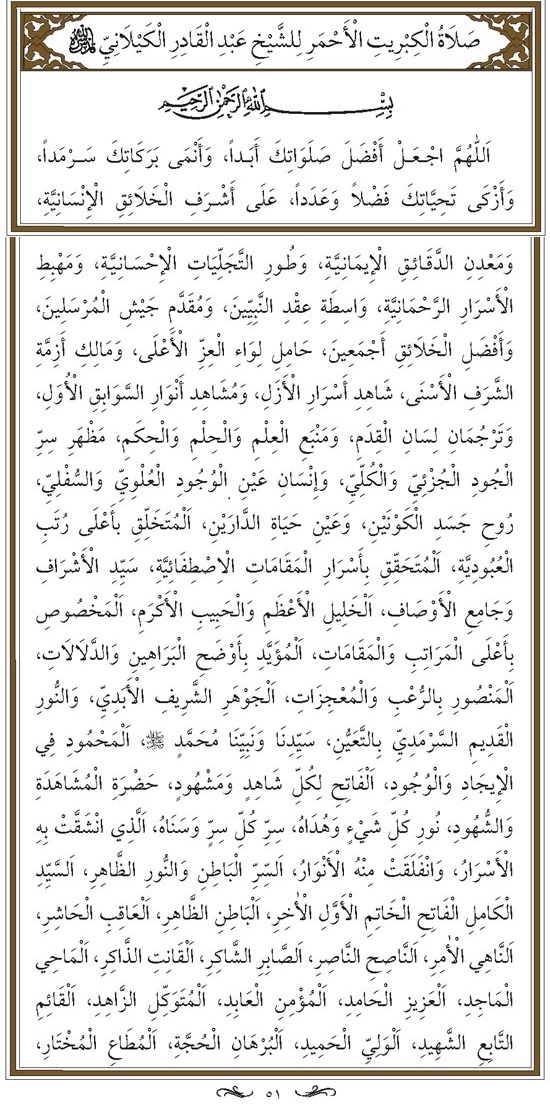 صَلَاةُ الْكِبْرِيتِ الْأَحْمَرِ لِلشَّيْخِ عَبْدِ الْقَادِرِ الْكَيْلَانِيِّ
بِسْمِ اللهِ الرَّحْمٰنِ الرَّحِيمِ
اَللّٰهُمَّ اجْعَلْ أَفْضَلَ صَلَوَاتِكَ أَبَداً، وَأَنْمَى بَرَكَاتِكَ سَرْمَداً،
وَأَزْكَى تَحِيَّاتِكَ فَضْلاً وَعَدَداً، عَلَى أَشْرَفِ الْخَلَائِقِ الْإِنْسَانِيَّةِ،
وَمَعْدِنِ الدَّقَائِقِ الْإِيمَانِيَّةِ، وَطُورِ التَّجَلِّيَاتِ الْإِحْسَانِيَّةِ، وَمَهْبِطِ
الْأَسْرَارِ الرَّحْمَانِيَّةِ، وَاسِطَةِ عِقْدِ النَّبِيِّينَ، وَمُقَدَّمِ جَيْشِ الْمُرْسَلِينَ،
وَأَفْضَلِ الْخَلَائِقِ أَجْمَعِينَ، حَامِلِ لِوَاءِ الْعِزِّ الْأَعْلَى، وَمَالِكِ أَزِمَّةِ
الشَّرَفِ الْأَسْنَى، شَاهِدِ أَسْرَارِ الْأَزَلِ، وَمُشَاهِدِ أَنْوَارِ السَّوَابِقِ الْأُوَلِ،
وَتَرْجُمَانِ لِسَانِ الْقِدَمِ، وَمَنْبَعِ الْعِلْمِ وَالْحِلْمِ وَالْحِكَمِ، مَظْهَرِ سِرِّ
الْجُودِ الْجُزْئِيِّ وَالْكُلِّيِّ، وَإِنْسَانِ عَيْنِ الْوُجُودِ الْعُلْوِيِّ وَالسُّفْلِيِّ،
رُوحِ جَسَدِ الْكَوْنَيْنِ، وَعَيْنِ حَيَاةِ الدَّارَيْنِ، اَلْمُتَخَلِّقِ بِأَعْلَى رُتَبِ
الْعُبُودِيَّةِ، اَلْمُتَحَقِّقِ بِأَسْرَارِ الْمَقَامَاتِ الْاِصْطِفَائِيَّةِ، سَيِّدِ الْأَشْرَافِ
وَجَامِعِ الْأَوْصَافِ، اَلْخَلِيلِ الْأَعْظَمِ وَالْحَبِيبِ الْأَكْرَمِ، اَلْمَخْصُوصِ
بِأَعْلَى الْمَرَاتِبِ وَالْمَقَامَاتِ، اَلْمُؤَيَّدِ بِأَوْضَحِ الْبَرَاهِينِ وَالدَّلَالَاتِ،
اَلْمَنْصُورِ بِالرُّعْبِ وَالْمُعْجِزَاتِ، اَلْجَوْهَرِ الشَّرِيفِ الْأَبَدِيِّ، وَالنُّورِ
الْقَدِيمِ السَّرْمَدِيِّ بِالتَّعَيُّنِ، سَيِّدِنَا وَنَبِيِّنَا مُحَمَّدٍ ﷺ، اَلْمَحْمُودِ فِي
الْإِيجَادِ وَالْوُجُودِ، اَلْفَاتِحِ لِكُلِّ شَاهِدٍ وَمَشْهُودٍ، حَضْرَةِ الْمُشَاهَدَةِ
وَالشُّهُودِ، نُورِ كُلِّ شَيْءٍ وَهُدَاهُ، سِرِّ كُلِّ سِرٍّ وَسَنَاهُ، اَلَّذِي انْشَقَّتْ بِهِ
الْأَسْرَارُ، وَانْفَلَقَتْ مِنْهُ الْأَنْوَارُ، اَلسِّرِّ الْبَاطِنِ وَالنُّورِ الظَّاهِرِ، اَلسَّيِّدِ
الْكَامِلِ الْفَاتِحِ الْخَاتِمِ الْأَوَّلِ الْآخِرِ، اَلْبَاطِنِ الظَّاهِرِ، اَلْعَاقِبِ الْحَاشِرِ،
اَلنَّاهِي الْآمِرِ، اَلنَّاصِحِ النَّاصِرِ، اَلصَّابِرِ الشَّاكِرِ، اَلْقَانِتِ الذَّاكِرِ، اَلْمَاحِي
الْمَاجِدِ، اَلْعَزِيزِ الْحَامِدِ، اَلْمُؤْمِنِ الْعَابِدِ، اَلْمُتَوَكِّلِ الزَّاهِدِ، اَلْقَائِمِ
التَّابِعِ الشَّهِيدِ، اَلْوَلِيِّ الْحَمِيدِ، اَلْبُرْهَانِ الْحُجَّةِ، اَلْمُطَاعِ الْمُخْتَارِ،
٥١